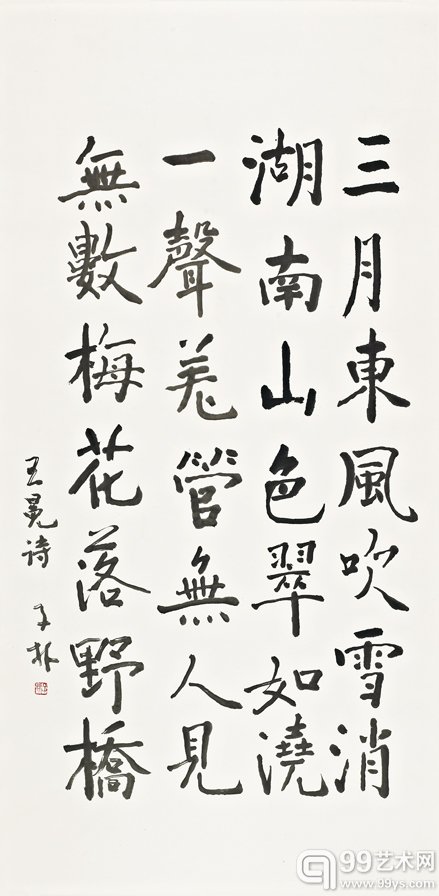 三月東風吹雪消
湖南山色翠如澆
一聲羌管無人見
無數梅花落野橋
王冕诗 子朴
99艺术网
www.99ys.com